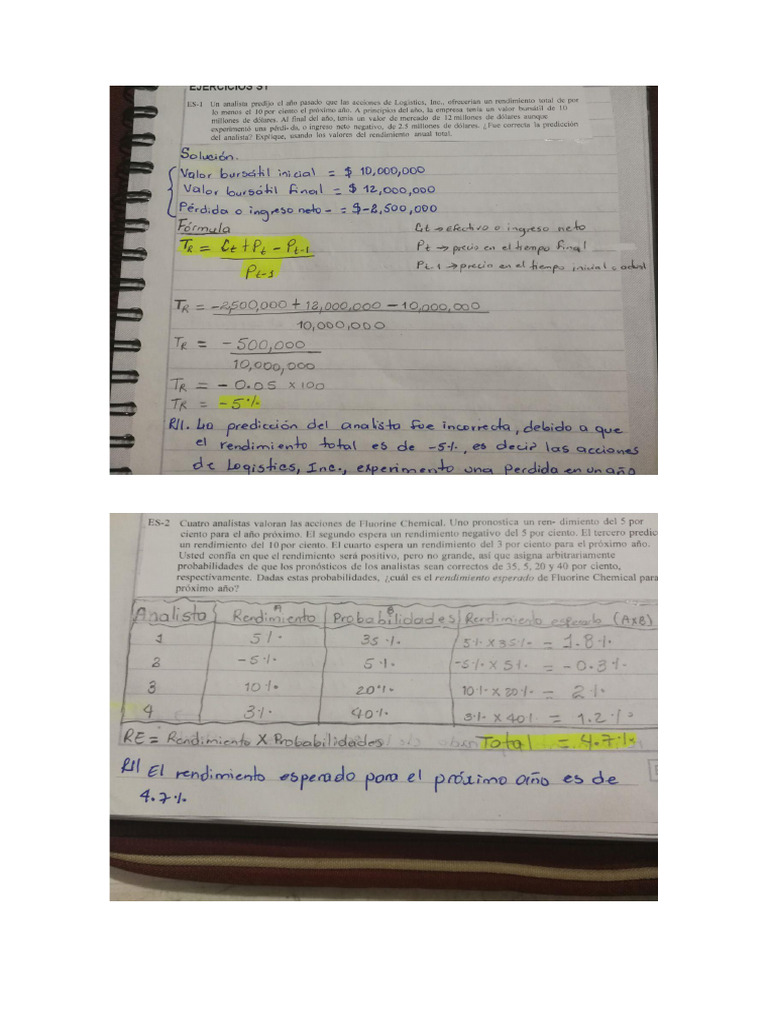 EJERCICIOS 51
ES-1 Un analista predijo el año pasado que las acciones de Logistics, Inc., ofrecerían un rendimiento total de por
lo menos el 10 por ciento el próximo año. A principios del año, la empresa tenía un valor bursátil de 10
millones de dólares. Al final del año, tenía un valor de mercado de 12 millones de dólares aunque
experimentó una pérdi-da, o ingreso neto negativo, de 2.5 millones de dólares. ¿Fue correcta la predicción
del analista? Explique, usando los valores del rendimiento anual total.
Solución.
Valor bursátil inicial = $ 10,000,000
Valor bursátil final = $ 12,000,000
Pérdida o ingreso neto - = $-2,500,000
Fórmula
Ct → efectivo o ingreso neto
TR = Ct + Pt - Pt-1
Pt → precio en el tiempo final
Pt-1
Pt-1 → precio en el tiempo inicial o actual
TR = -2,500,000 + 12,000,000 - 10,000,000
10,000,000
TR = - 500,000
10,000,000
TR = - 0.05 x100
TR = -5%
R//. La predicción del analista fue incorrecta, debido a que
el rendimiento total es de -5%, es decir las acciones
de Logistics, Inc., experimento una perdida en un año
ES-2 Cuatro analistas valoran las acciones de Fluorine Chemical. Uno pronostica un ren- dimiento del 5 por
ciento para el año próximo. El segundo espera un rendimiento negativo del 5 por ciento. El tercero predic
un rendimiento del 10 por ciento. El cuarto espera un rendimiento del 3 por ciento para el próximo año.
Usted confía en que el rendimiento será positivo, pero no grande, así que asigna arbitrariamente
probabilidades de que los pronósticos de los analistas sean correctos de 35, 5, 20 y 40 por ciento,
respectivamente. Dadas estas probabilidades, ¿cuál es el rendimiento esperado de Fluorine Chemical para
próximo año?
A B
Analista Rendimiento Probabilidades Rendimiento esperado (AxB)
1 5% 35% 5% x 35% = 1.8%
2 -5% 5% -5% x 5% = -0.3%
3 10% 20% 10% x 20% = 2%
4 3% 40% 3% x 40% = 1.2%
RE = Rendimiento X Probabilidades Total = 4.7%
R// El rendimiento esperado para el próximo año es de
4.7%